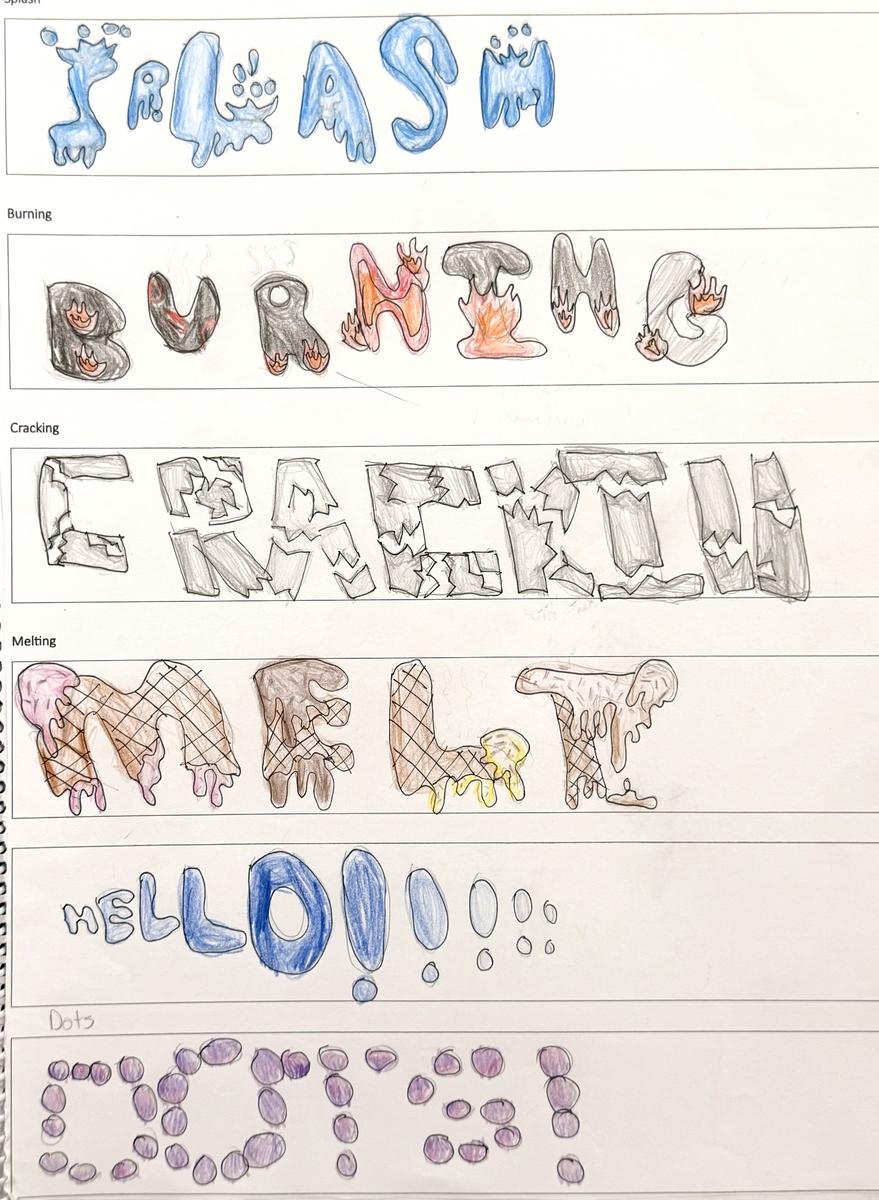 Splash
SPLASH
Burning
BURNING
Cracking
CRACKIN
Melting
MELT
HELLO!!!!!
Dots
DOTS!